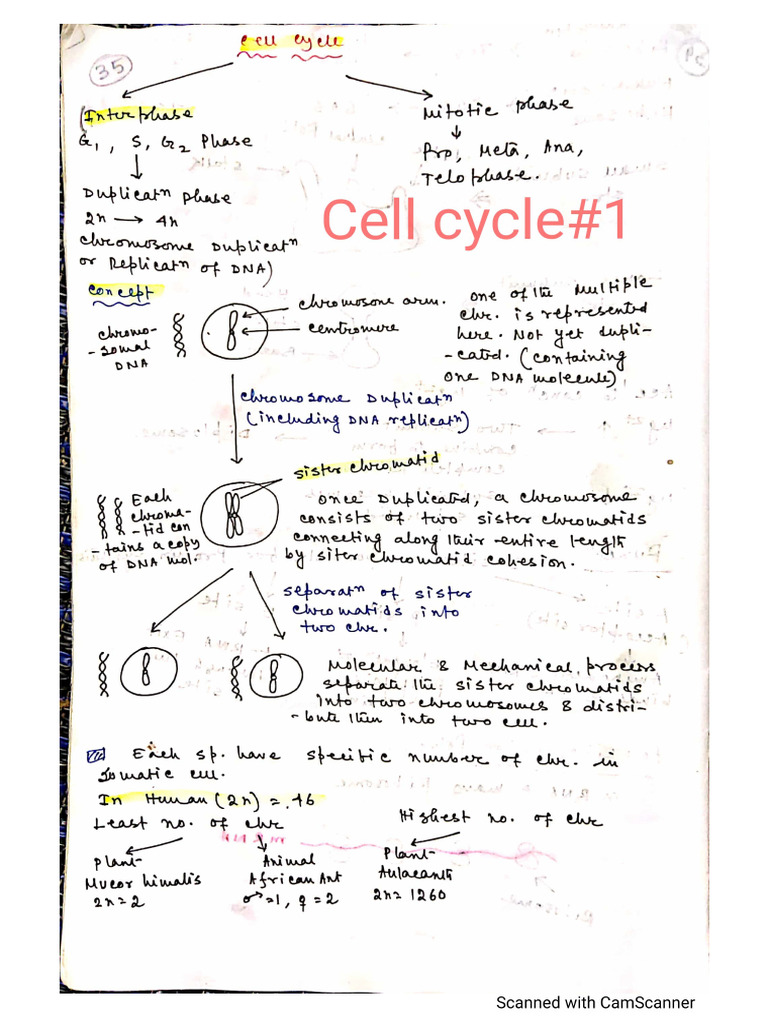 Cell cycle
35
(Interphase
G1, S, G2 Phase
Duplicatn phase
2n → 4n
chromosome Duplicatn
or Replicatn of DNA)
Mitotic phase
Pro, Meta, Ana,
Telophase.
Cell cycle#1
concept
chromo-
-somal
DNA
chromosome arm.
centromere
one of the multiple
chr. is represented
here. Not yet dupli-
-cated. (containing
one DNA molecule)
chromosome Duplicatn
(including DNA replicatn)
sister chromatid
Each
chroma-
-tid con
-tains a copy
of DNA mol.
once Duplicated, a chromosome
consists of two sister chromatids
connecting along their entire length
by siter chromatid cohesion.
separatn of sister
chromatids into
two chr.
Molecular & Mechanical process
separate the sister chromatids
into two chromosomes & distri-
-bute then into two cell.
Each sp. have specific number of chr. in
somatic cell.
In Human (2n) = 46
Least no. of chr
Highest no. of chr
Plant-
Mucor himalis
2n=2
Animal
African Ant
♂=1, ♀=2
Plant-
Aulacanth
2n=1260
Scanned with CamScanner